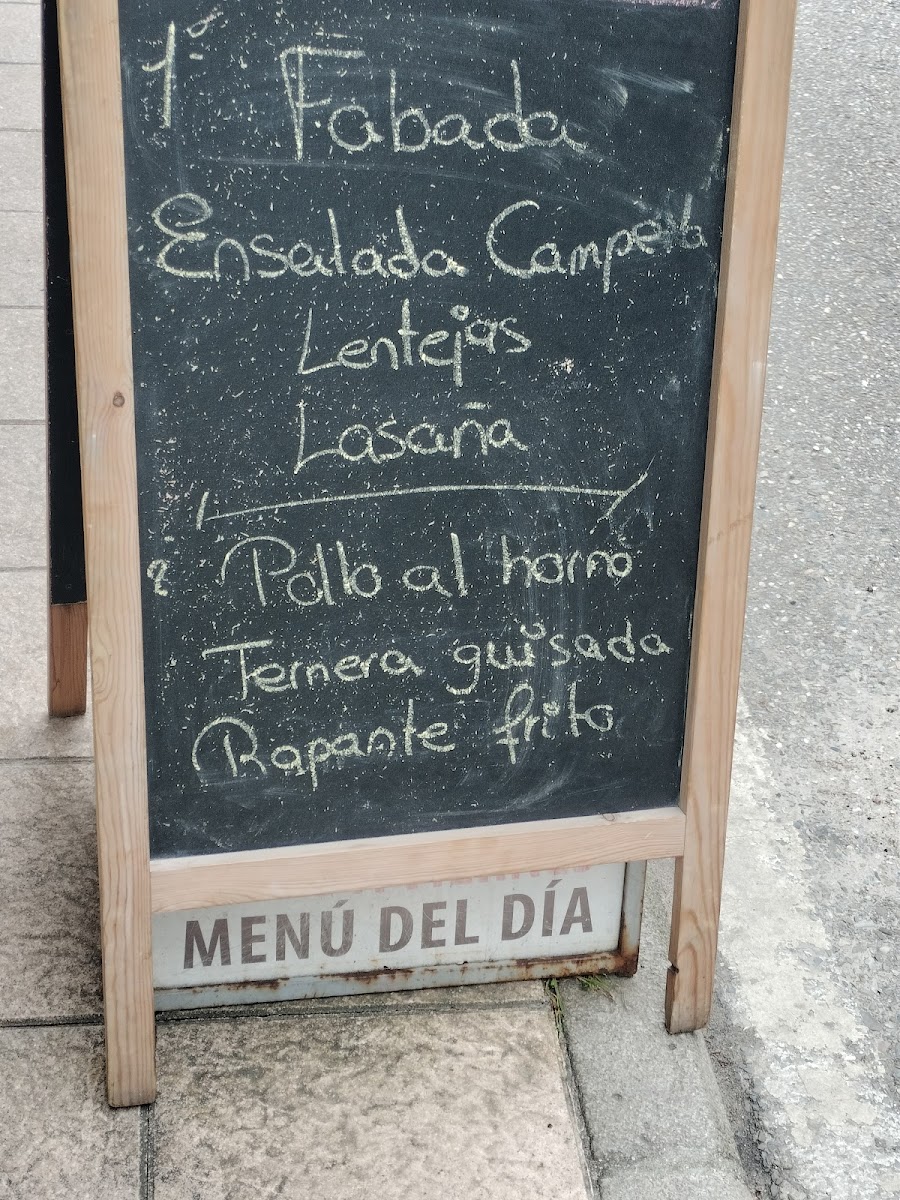 1º
Fabada
Ensalada Campera
Lentejas
Lasaña
2º
Pollo al horno
Ternera guisada
Rapante frito
MENÚ DEL DÍA